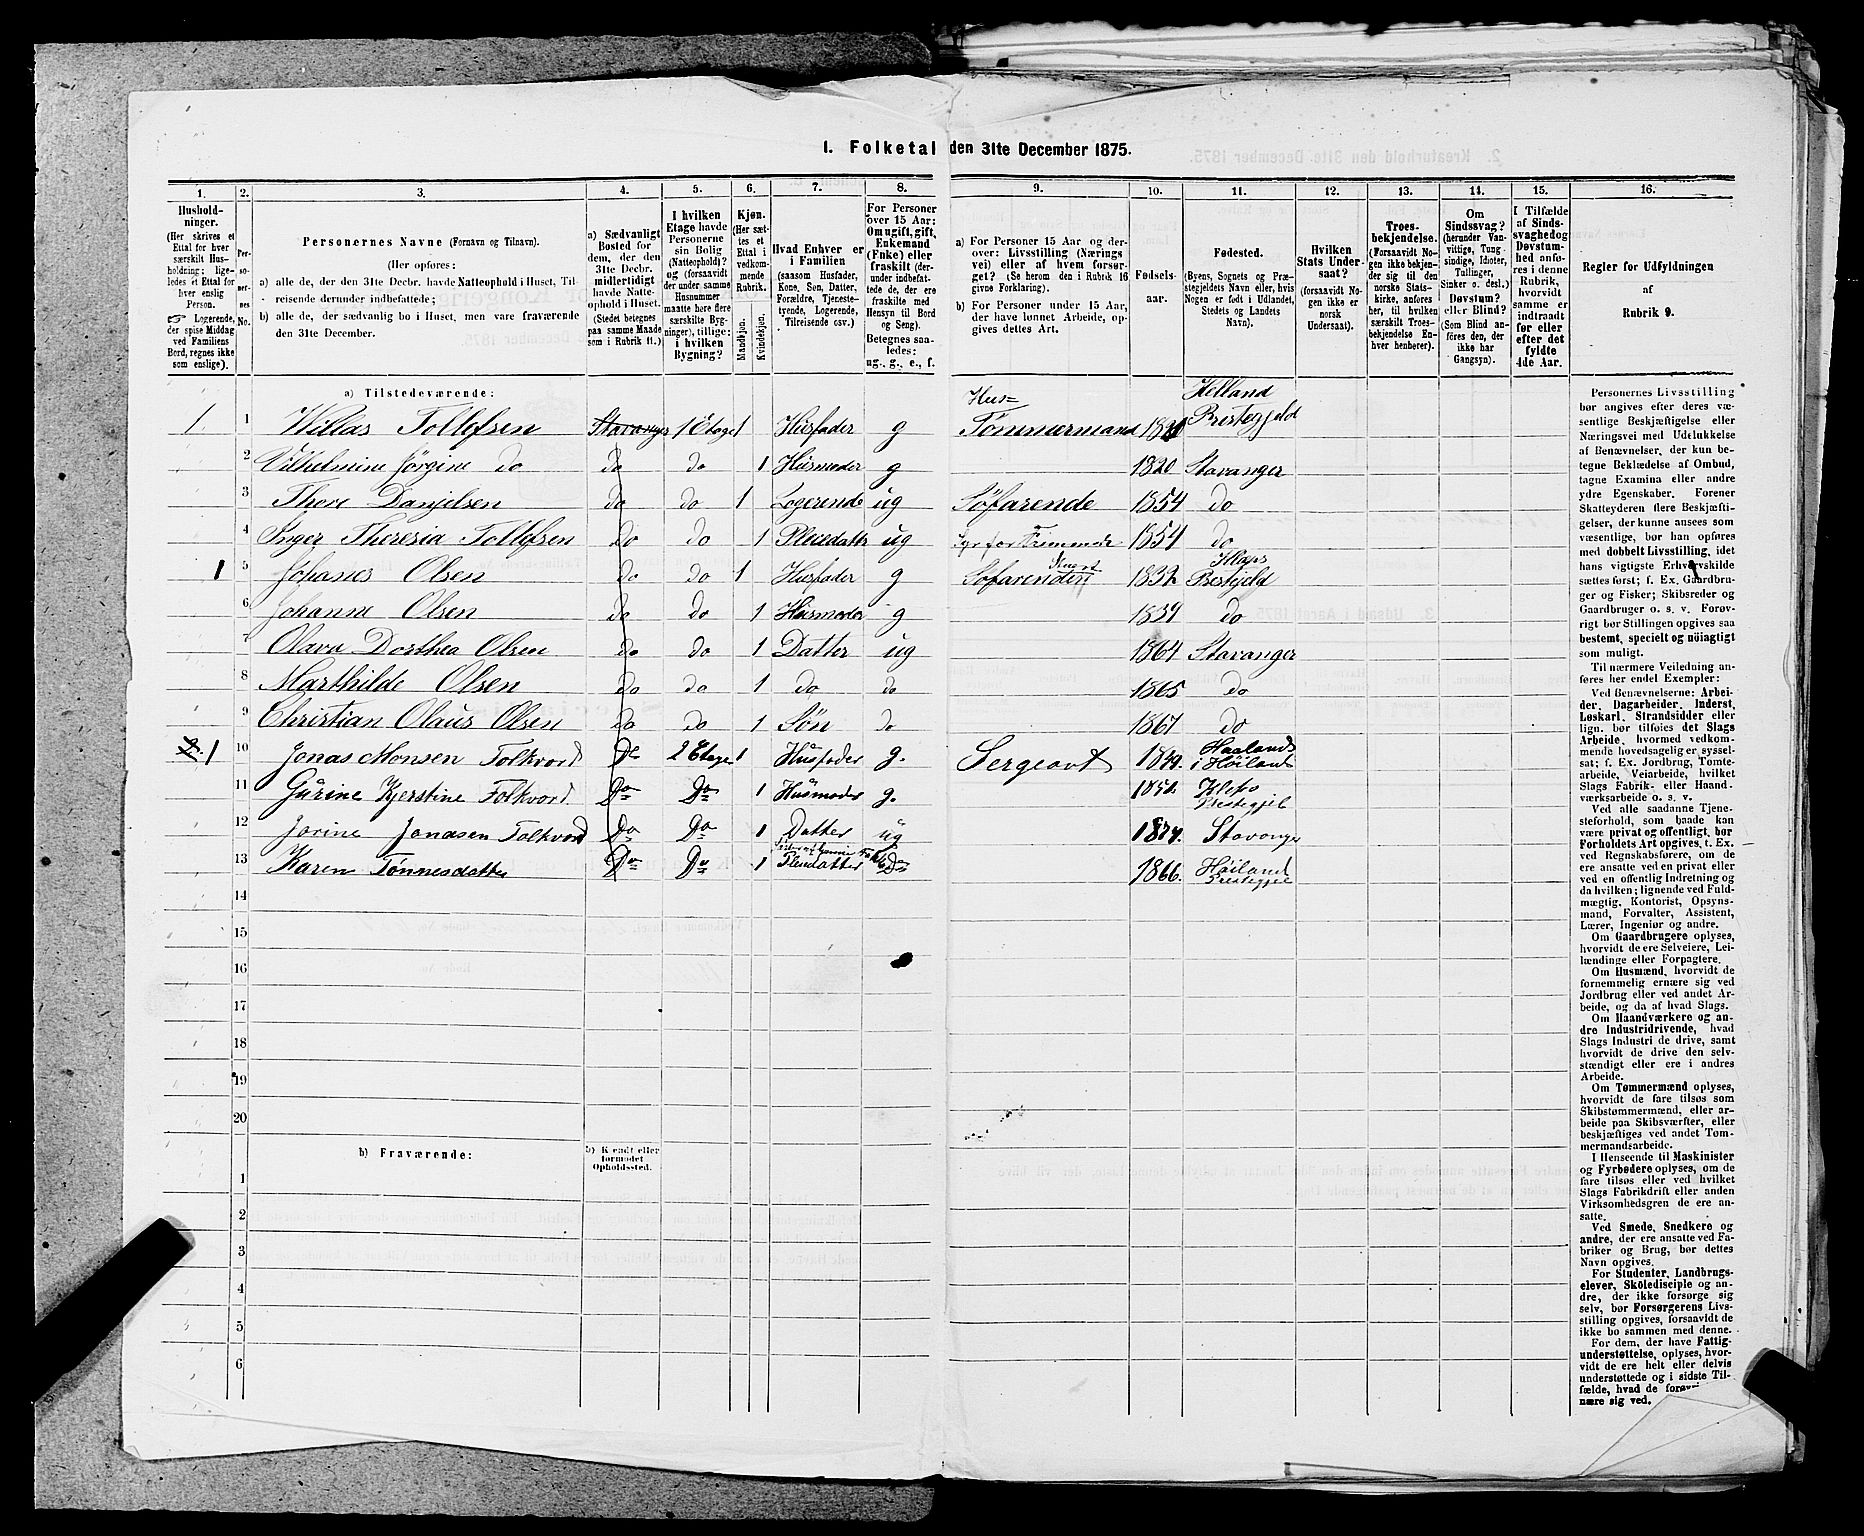 1. Folketal den 31te December 1875.
1. 2. 3. 4. 5. 6. 7. 8. 9. 10. 11. 12. 13. 14. 15. 16.
Hushold-
ninger.
(Her skrives et
Ettal for hver
særskilt Hus-
holdning; lige-
ledes et Ettal
for hver
enslig
Person.
☞ Logerende,
der spise Middag
ved Familiens
Bord, regnes ikke
som enslige).
Per-
so-
ner-
nes
No.
Personernes Navne (Fornavn og Tilnavn).
(Her opføres:
a) alle de, der den 31te Decbr. havde Natteophold i Huset, Til-
reisende derunder indbefattede;
b) alle de, der sædvanlig bo i Huset, men vare fraværende
den 31te December.
a) Sædvanligt
Bosted for
dem, der den
31te Decbr.
midlertidigt
havde Natte-
ophold i Huset.
(Stedet betegnes
paa samme Maade
som i Rubrik 11.)
I hvilken
Etage havde
Personerne
sin Bolig
(Natteophold)?
og (forsaavidt
der under samme
Husnummer
maatte høre flere
særskilte Byg-
ninger), tillige:
i hvilken
Bygning?
Kjøn.
(Her sæt-
tes et
Ettal i
vedkom-
mende
Rubrik.
Mandkjøn.
Kvindekjøn.
Hvad Enhver er
i Familien
(saasom Husfader,
Kone, Søn, Datter,
Forældre, Tjeneste-
tyende, Logerende,
Tilreisende osv.)
For Personer
over 15 Aar:
Om ugift, gift,
Enkemand
(Enke) eller
fraskilt (der-
under indbefat-
tede de, der ere
fraskilte med
Hensyn til Bord
og Seng).
Betegnes saa-
ledes:
ug., g., e., f.
a) For Personer 15 Aar og der-
over: Livsstilling (Nærings
vei) eller af hvem forsør-
get? (Se herom den i Rubrik 16
givne Forklaring).
b) For Personer under 15 Aar,
der have lønnet Arbeide, op-
gives dettes Art.
Fødsels-
aar.
Fødested.
(Byens, Sognets og Præ-
stegjeldets Navn eller, hvis
Nogen er født i Udlandet,
Stedets og Landets
Navn).
Hvilken
Stats Under-
saat?
(forsaavidt No-
gen ikke er
norsk
Undersaat).
Troes-
bekjendelse.
(Forsaavidt No-
gen ikke bekjen-
der sig til den
norske Stats-
kirke, anføres
her, til hvilken
særskilt Troes-
bekjendelse En-
hver henhører).
Om
Sindssvag?
(herunder Van-
vittige, Tung-
sindige, Idioter,
Tullinger,
Sinker o. desl.)
Døvstum?
eller Blind?
(Som Blind an-
føres den, der
ikke har
Gangsyn).
I Tilfælde
af Sinds-
svaghed og
Døvstum-
hed anfø-
res i denne
Rubrik,
hvorvidt
samme er
indtraadt
før eller
efter det
fyldte
4de Aar.
Regler for Udfyldningen
af
Rubrik 9.
a) Tilstedeværende:
1 1 Willas Tollefsen Stavanger 1 Etage 1 Husfader g Hus= Tømmermand Helland Prestegjeld
2 Vilhelmine Jørgine do do do 1 Husmoder g 1820 Stavanger
3 Thore Danjelsen do do 1 Logerende ug Söfarende 1854 do
4 Inger Theresia Tollefsen do do 1 Pleiedatter ug Syr for Fremmede 1854 do
1 5 Johanes Olsen do do 1 Husfader g Söfarende 1832 Kleps Prestgjeld
6 Johanne Olsen do do 1 Husmoder g 1839 do
7 Olava Dorthea Olsen do do 1 Datter ug 1864 Stavanger
8 Marthilde Olsen do do 1 do do 1865 do
9 Christian Olaus Olsen do do 1 Sön do 1867 do
1 10 Jonas Monsen Folkvord Do 2 Etage 1 Husfader g. Sergeant Haalands i Høiland
11 Gurine Kjerstine Folkvord Do Do 1 Husmoder g. Klep Prestegjel
12 Jorine Jonasen Folkvord Do Do 1 Datter ug 1874. Stavange
13 Karen Tønnesdatter Do Do 1 Pleiedatter Do 1866. Høiland Prestegjel
14
15
16
17
18
19
20
b) Fraværende:
b) Kjendt eller
formodet
Opholdssted.
1
2
3
4
5
6
Personernes Livsstilling
bør angives efter deres væ-
sentlige Beskjæftigelse eller
Næringsvei med Udelukkelse
af Benævnelser, der kun be-
tegne Beklædelse af Ombud,
tagne Examina eller andre
ydre Egenskaber. Forener
Skatteyderen flere Beskjæfti-
gelser, der kunne ansees som
væsentlige, bør han opføres
med dobbelt Livsstilling, idet
hans vigtigste Erhvervskilde
sættes først; f. Ex. Gaardbru-
ger og Fisker; Skibsreder og
Gaardbruger o. s. v. Forøv-
rigt bør Stillingen opgives saa
bestemt, specielt og nøiagtigt
som muligt.
Til nærmere Veiledning an-
føres her endel Exempler:
Ved Benævnelserne: Arbei-
der, Dagarbeider, Inderst,
Løskarl, Strandsidder eller
lign. bør tilføies det Slags
Arbeide, hvormed vedkom-
mende hovedsagelig er syssel-
sat; f. Ex. Jordbrug, Tømte-
arbeide, Veiarbeide, hvilket
Slags Fabrik- eller Haand-
værksarbeide o. s. v.
Ved alle saadanne Tjene-
steforhold, som baade kan
være privat og offentligt, bør
Forholdets Art opgives, t. Ex.
ved Regnskabsførere, om de
ere ansatte ved en privat eller
ved en offentlig Indretning og
da hvilken; lignende ved Fuld-
mægtig, Kontorist, Opsyns-
mand, Forvalter, Assistent,
Lærer, Ingeniør og andre.
Om Gaardbrugere oplyses,
hvorvidt de ere Selveiere, Lei-
lændinge eller Forpagtere.
Om Husmænd, hvorvidt de
fornemmelig ernære sig ved
Jordbrug eller ved andet Ar-
beide, og da af hvad Slags.
Om Haandværkere og an-
dre Industridrivende, hvad
Slags Industri de drive, samt
hvorvidt de drive den selv-
stændigt eller ere i andres
Arbeide.
Om Tømmermænd oplyses,
hvorvidt de fare tilsøs som
Skibstømmermænd, eller ar-
beide paa Skibsværfter, eller
beskjæftiges ved andet Tøm-
mermandsarbeide.
I Henseende til Maskinister
og Fyrbødere oplyses, om de
fare tilsøs eller ved hvilket
Slags Fabrikdrift eller anden
Virksomhedsgren de ere an-
satte.
Ved Smede, Snedkere og
andre, der ere ansatte ved Fa-
briker og Brug, bør dettes
Navn opgives.
For Studenter, Landbrugs-
elever, Skoledisciple og an-
dre, der ikke forsørge sig
selv, bør Forsørgerens Livs-
stilling opgives, forsaavidt de
ikke bo sammen med denne.
For dem, der have Fattig-
understøttelse, oplyses, hvor-
vidt de ere helt eller delvis
understøttede og i sidste Til-
fælde, hvad de forøvri
nære sig ved.